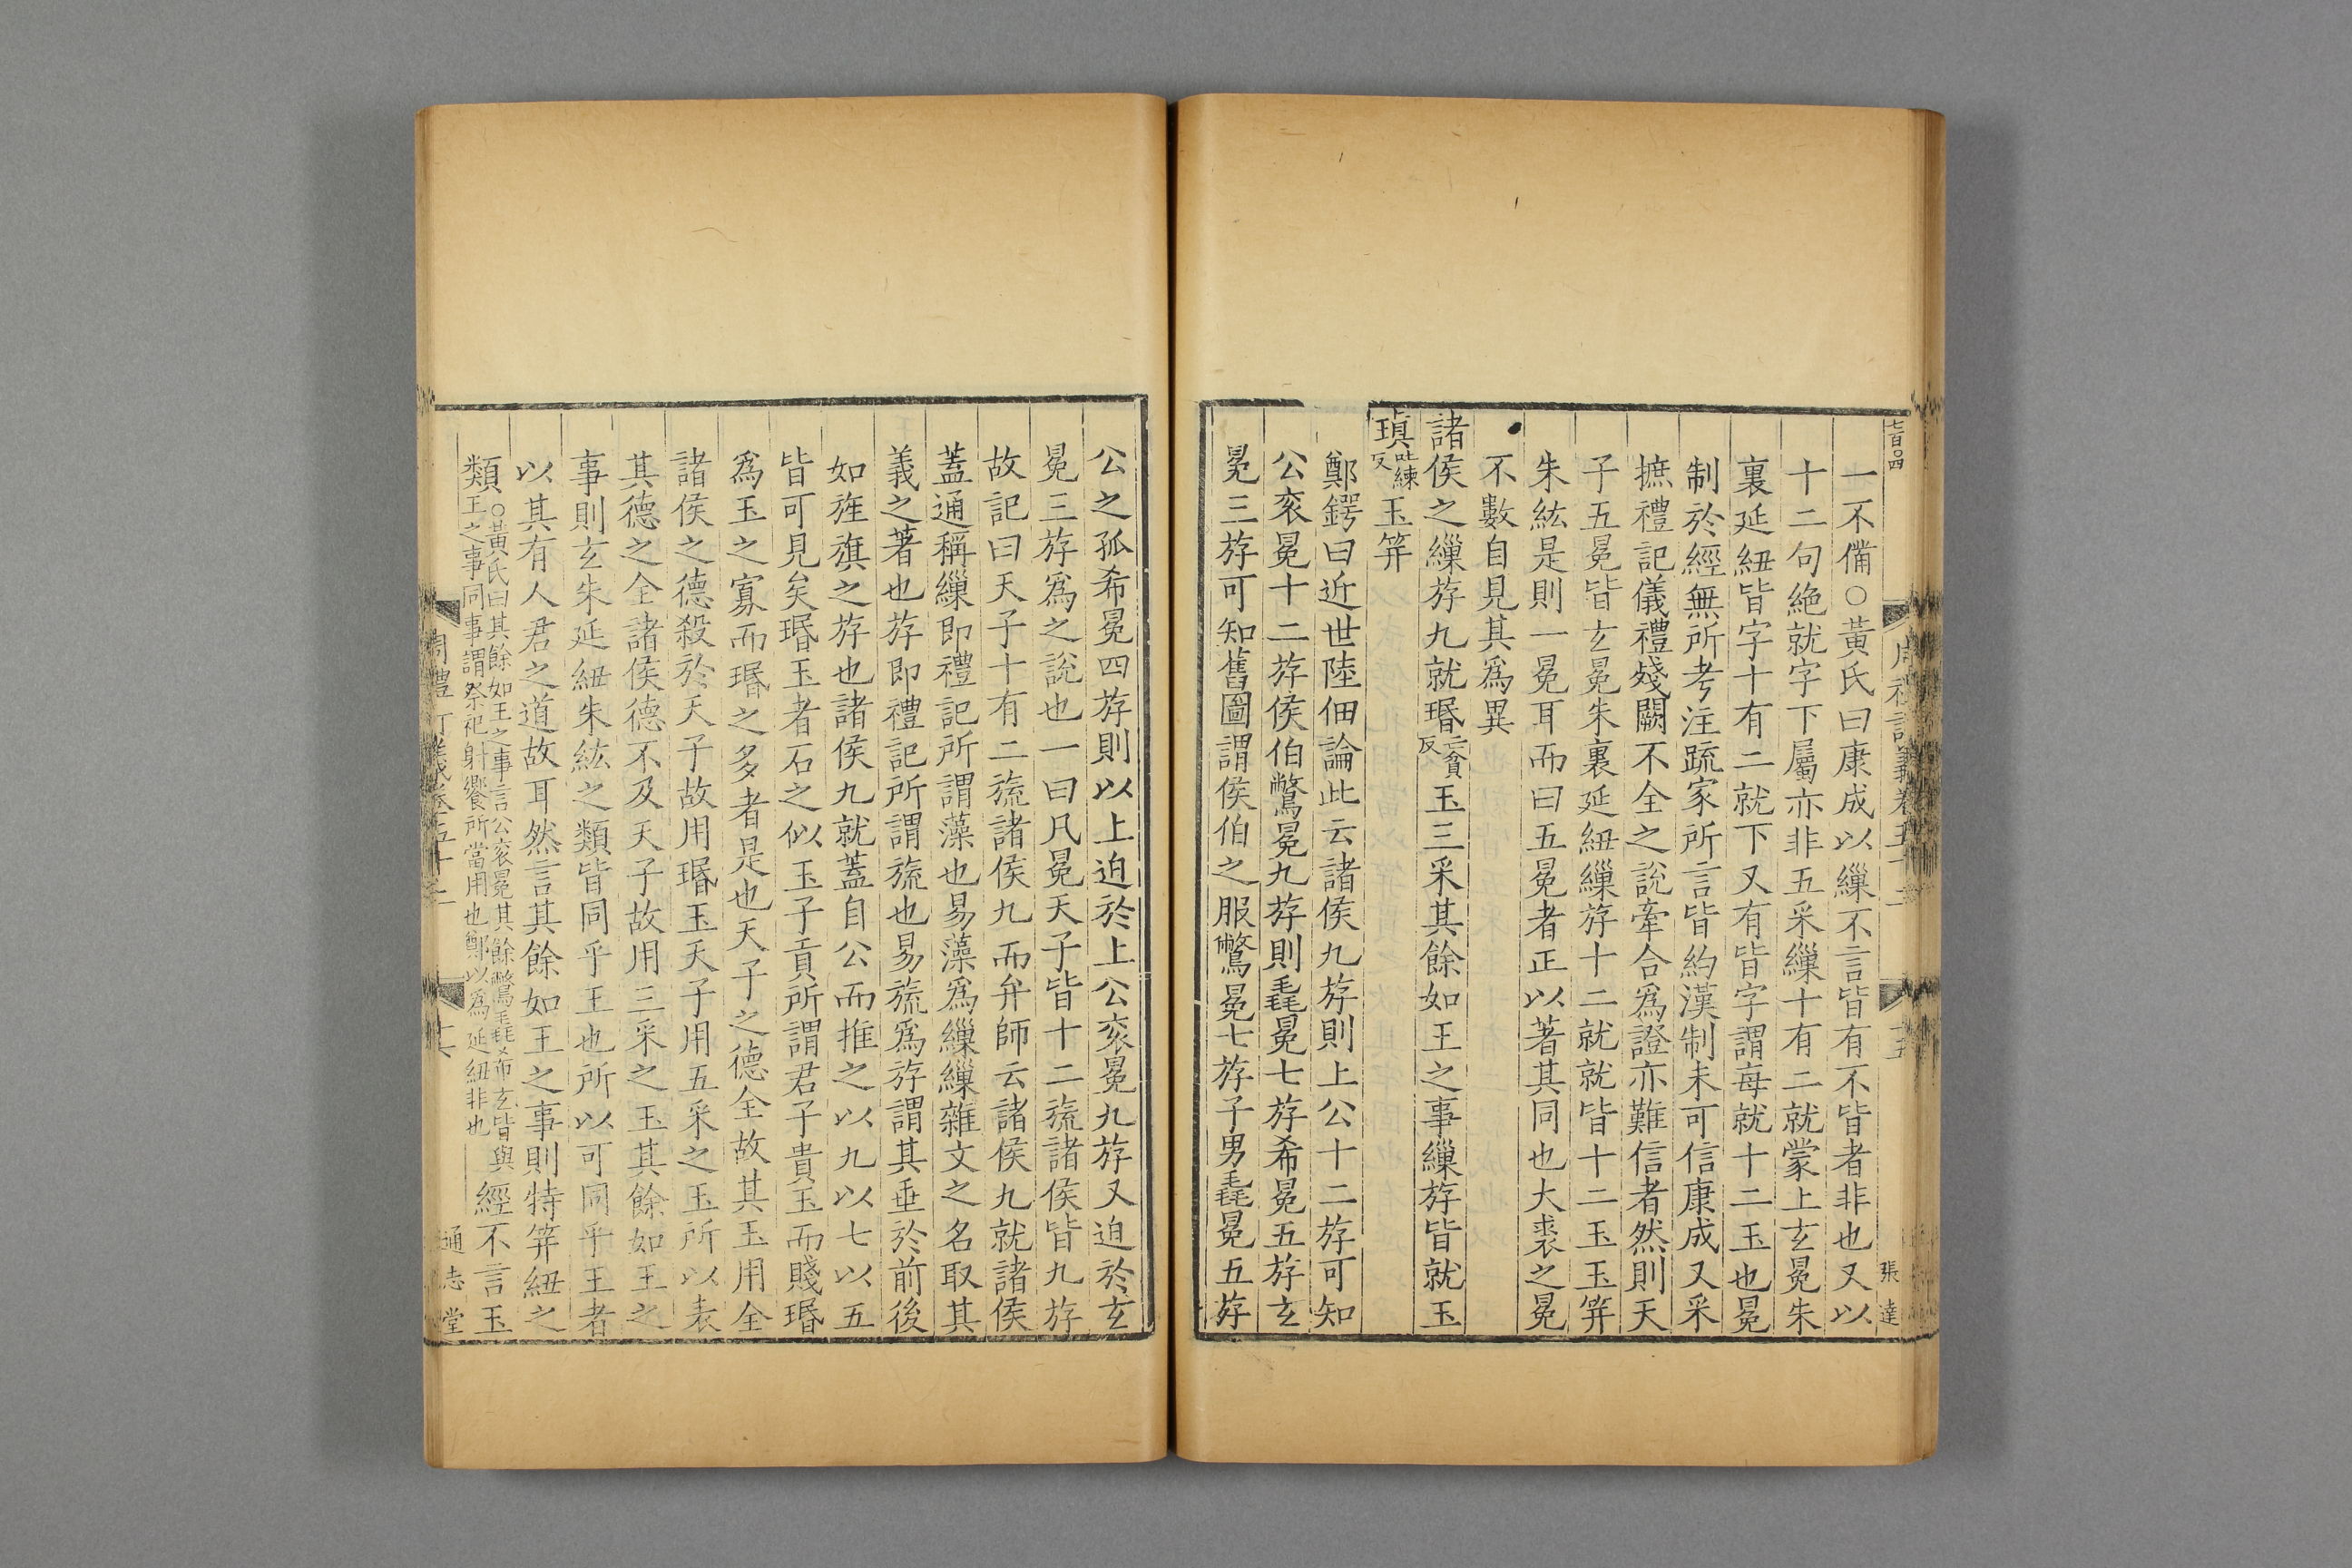 七百〇四
張達
一不備○黃氏曰康成以繅不言皆有不皆者非也又以
十二句絶就字下屬亦非五采繅十有二就蒙上玄冕朱
裏延紐皆字十有二就下又有皆字謂每就十二玉也冕
制於經無所考注疏家所言皆約漢制未可信康成又采
摭禮記儀禮殘闕不全之說牽合為證亦難信者然則天
子五冕皆玄冕朱裏延紐繅斿十二就就皆十二玉玉笄
朱紘是則一冕耳而曰五冕者正以著其同也大裘之冕
不數自見其為異
諸侯之繅斿九就瑉亡貧反玉三采其餘如王之事繅斿皆就玉
瑱吐練反玉笄
鄭鍔曰近世陸佃論此云諸侯九斿則上公十二斿可知
公衮冕十二斿侯伯鷩冕九斿則毳冕七斿希冕五斿玄
冕三斿可知舊圖謂侯伯之服鷩冕七斿子男毳冕五斿
公之孤希冕四斿則以上迫於上公衮冕九斿又迫於玄
冕三斿為之說也一曰凡冕天子皆十二旒諸侯皆九斿
故記曰天子十有二旒諸侯九而弁師云諸侯九就諸侯
蓋通稱繅即禮記所謂藻也易藻為繅繅雜文之名取其
義之著也斿即禮記所謂旒也易旒為斿謂其垂於前後
如旌旗之斿也諸侯九就蓋自公而推之以九以七以五
皆可見矣瑉玉者石之似玉子貢所謂君子貴玉而賤瑉
為玉之寡而瑉之多者是也天子之德全故其玉用全
諸侯之德殺於天子故用瑉玉天子用五采之玉所以表
其德之全諸侯德不及天子故用三采之玉其餘如王之
事則玄朱延紐朱紘之類皆同乎王也所以可同乎王者
以其有人君之道故耳然言其餘如王之事則特笄紐之
類○黃氏曰其餘如王之事言公衮冕其餘鷩毳希玄皆與王之事同事謂祭祀射饗所當用也鄭以為延紐非也經不言玉
周禮訂義卷五十二
通志堂